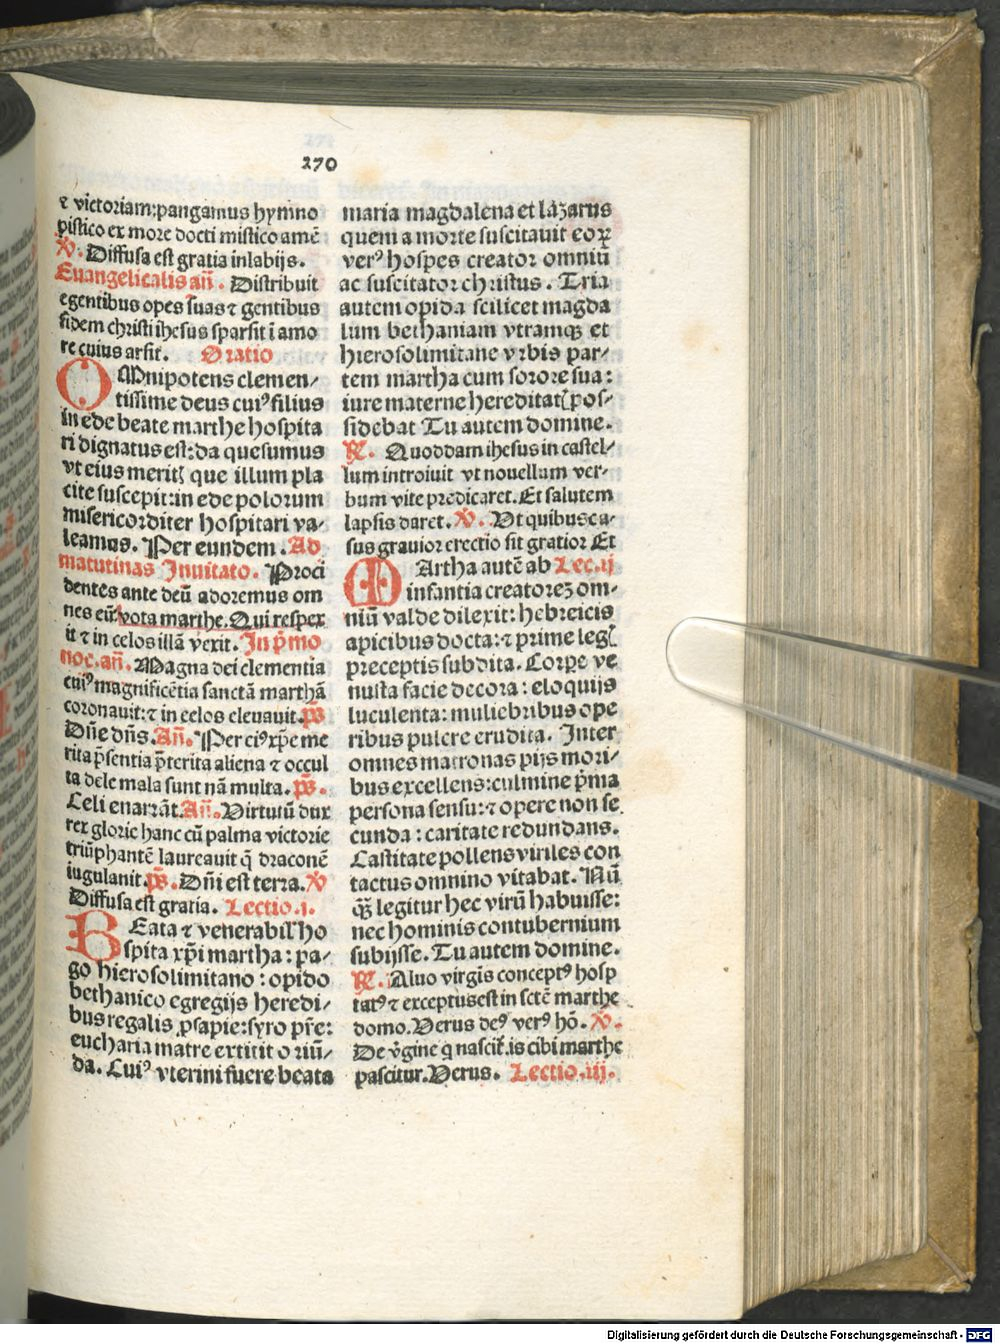 270
⁊ victoriam:pangamus hymno
pistico ex more docti mistico amē
℣. Diffusa est gratia inlabijs.
Euangelicalis añ. Distribuit
egentibus opes suas ⁊ gentibus
fidem christi ihesus sparsit ī amo
re cuius arsit. Oratio
OMnipotens clemen⸗
tissime deus cuiꝰ filius
in ede beate marthe hospita
ri dignatus est:da quesumus
vt eius meritꝭ que illum pla
cite suscepit:in ede polorum
misericorditer hospitari va⸗
leamus. Per eundem. Ad
matutinas Inuitato. Proci
dentes ante deū adoremus om
nes eū:vota marthe. Qui respex
it ⁊ in celos illā vexit. In pͥmo
noc. añ. Magna dei clementia
cuiꝰ magnificētia sanctā marthā
coronauit:⁊ in celos eleuauit. p̄s
Dñe dñs. Añ. Per ciꝰ xp̄e me
rita p̄sentia p̄terita aliena ⁊ occul
ta dele mala sunt nā multa. p̄s.
Celi enarrāt. Añ. Virtutū dux
rex glorie hanc cū palma victorie
triūphantē laureauit q̄ draconē
iugulanit. p̄s. Dñi est terra. ℣
Diffusa est gratia. Lectio.i.
BEata ⁊ venerabil' ho
spita xp̄i martha: pa⸗
go hierosolimitano: opido
bethanico egregijs heredi⸗
bus regalis ꝓsapie:syro pr̄e:
eucharia matre extitit oriū⸗
da. Cuiꝰ vterini fuere beata
maria magdalena et lazarus
quem a morte suscitauit eoꝝ
verꝰ hospes creator omniū
ac suscitator christus. Tria
autem opida scilicet magda
lum bethaniam vtramqꝫ et
hierosolimitane vrbis par⸗
tem martha cum sorore sua:
iure materne hereditatꝭ pos⸗
sidebat Tu autem domine.
℟. Quoddam ihesus in castel⸗
lum introiuit vt nouellum ver⸗
bum vite predicaret. Et salutem
lapsis daret. ℣. Vt quibus ca⸗
sus grauior erectio sit gratior Et
MArtha autē ab Lec.ij
infantia creatorē om⸗
niū valde dilexit: hebreicis
apicibus docta:⁊ prime legꝭ
preceptis subdita. Corpe ve
nusta facie decora: eloquijs
luculenta: muliebribus ope
ribus pulcre erudita. Inter
omnes matronas pijs mori⸗
bus excellens:culmine pͥma
persona sensu:⁊ opere non se
cunda: caritate redundans.
Castitate pollens viriles con
tactus omnino vitabat. Nū
qꝫ legitur hec virū habuisse:
nec hominis contubernium
subijsse. Tu autem domine.
℟. Aluo virgīs conceptꝰ hosp
tatꝰ ⁊ exceptus est in sctē marthe
domo. Verus deꝰ verꝰ hō. ℣.
De vͥgine q nascit᷑.is cibi marthe
pascitur. Verus. Lectio.iij.
Digitalisierung gefördert durch die Deutsche Forschungsgemeinschaft - DFG